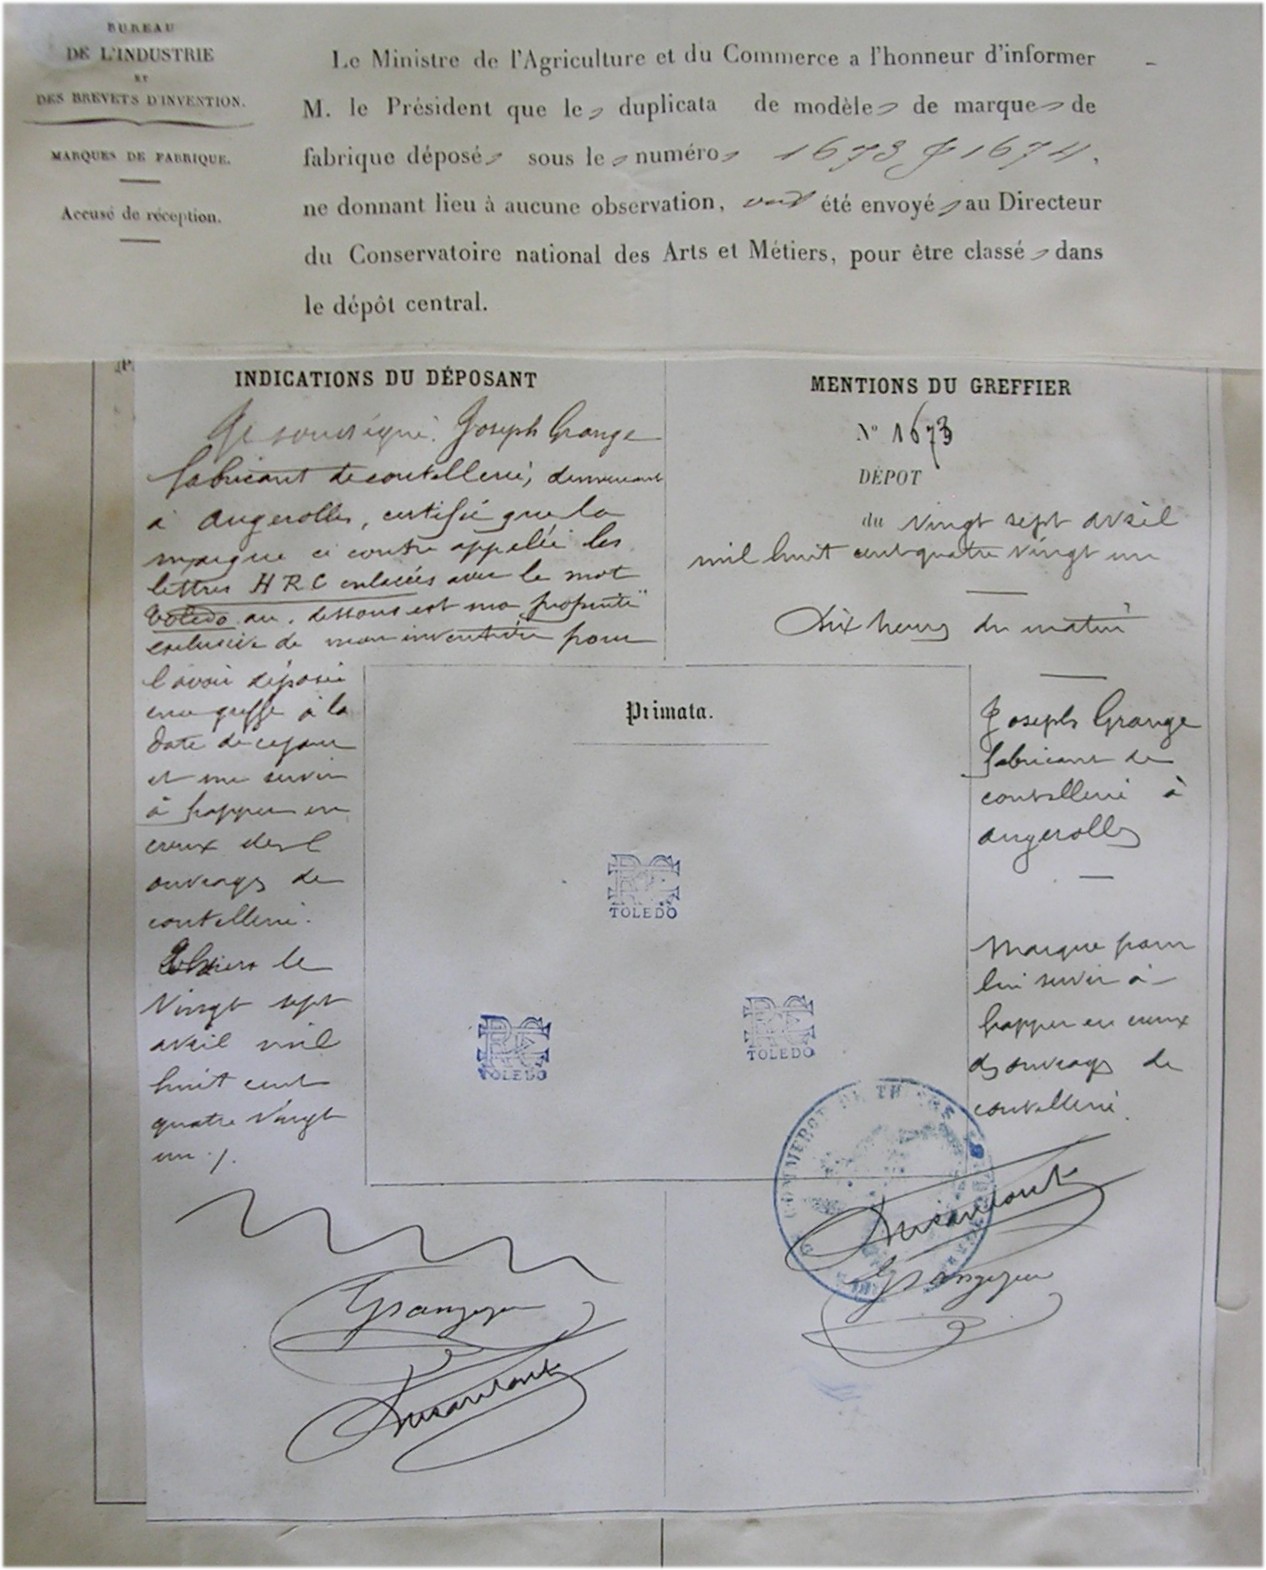 BUREAU
DE L'INDUSTRIE
ET
DES BREVETS D'INVENTION.
MARQUES DE FABRIQUE.
Accusé de réception.
Le Ministre de l'Agriculture et du Commerce a l'honneur d'informer
M. le Président que le s duplicata de modèle s de marque s de
fabrique déposé s sous le s numéro s 1673 & 1674,
ne donnant lieu à aucune observation, ont été envoyé s au Directeur
du Conservatoire national des Arts et Métiers, pour être classé s dans
le dépôt central.
INDICATIONS DU DÉPOSANT
Je soussigné Joseph Grange
fabricant de coutellerie, demeurant
à Augerolles, certifie que la
marque ci contre appelée les
lettres HRC enlacées avec le mot
Toledo au dessous est ma propriété
exclusive de mon invention pour
l'avoir déposée
au greffe à la
date de ce jour
et me servir
à frapper en
creux des
ouvrages de
coutellerie.
Thiers le
Vingt sept
avril mil
huit cent
quatre vingt
un ./.
Grangeyer
MENTIONS DU GREFFIER
N° 1673
DÉPOT
du vingt sept avril
mil huit cent quatre vingt un
Dix heures du matin
Primata.
TOLEDO
TOLEDO
TOLEDO
Joseph Grange
fabricant de
coutellerie à
augerolles
Marque pour
lui servir à
frapper en creux
ds ouvrages de
coutellerie.
DE COMMERCE DE THIERS
Grangeyer